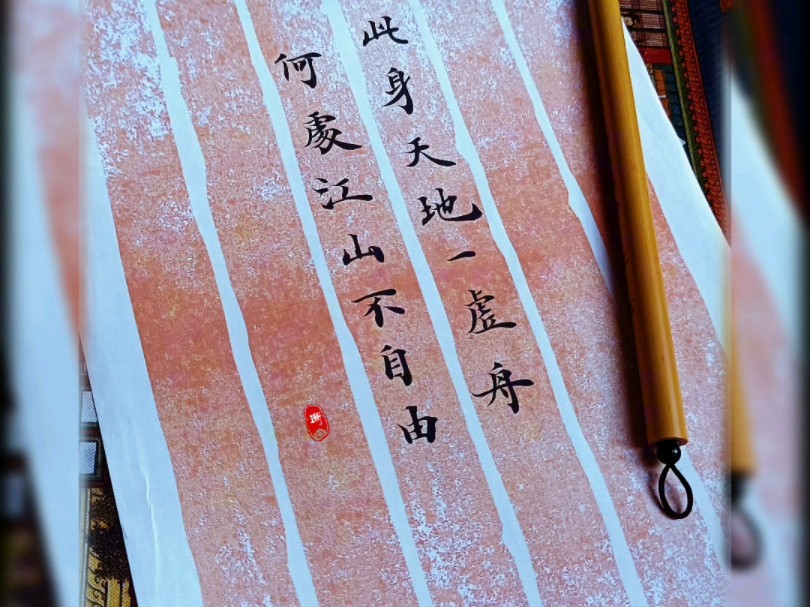 此身天地一虚舟
何處江山不自由